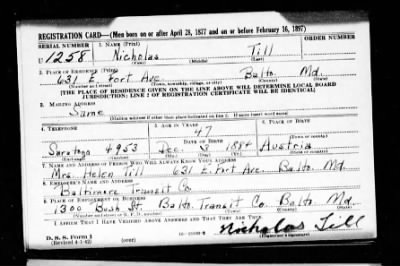 REGISTRATION CARD—(Men born on or after April 28, 1877 and on or before February 16, 1897)
SERIAL NUMBER 1. NAME (Print) ORDER NUMBER
U 1258 Nicholas Till
(First) (Middle) (Last)
2. PLACE OF RESIDENCE (Print)
631 E. Fort Ave Balto. Md.
(Number and street) (Town, township, village, or city) (County) (State)
[THE PLACE OF RESIDENCE GIVEN ON THE LINE ABOVE WILL DETERMINE LOCAL BOARD
JURISDICTION; LINE 2 OF REGISTRATION CERTIFICATE WILL BE IDENTICAL]
3. MAILING ADDRESS
Same
[Mailing address if other than place indicated on line 2. If same insert word same]
4. TELEPHONE 5. AGE IN YEARS 6. PLACE OF BIRTH
47
Saratoga 4953 DATE OF BIRTH Dec. 3 1884 Austria
(Exchange) (Number) (Mo.) (Day) (Yr.) (State or country)
7. NAME AND ADDRESS OF PERSON WHO WILL ALWAYS KNOW YOUR ADDRESS
Mrs. Helen Till 631 E. Fort Ave. Balto. Md.
8. EMPLOYER'S NAME AND ADDRESS
Baltimore Transit Co.
9. PLACE OF EMPLOYMENT OR BUSINESS
1300 Bush St. Balto. Transit Co. Balto. Md.
(Number and street or R. F. D. number) (Town) (County) (State)
I AFFIRM THAT I HAVE VERIFIED ABOVE ANSWERS AND THAT THEY ARE TRUE.
D. S. S. Form 1
(Revised 4-1-42) (over) Nicholas Till
(Registrant's signature)